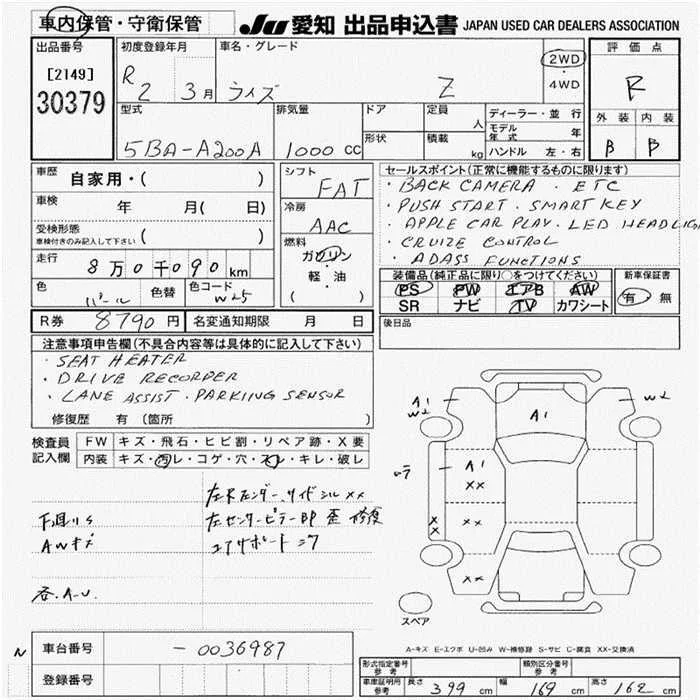 車内保管・守衛保管 JU 愛知 出品申込書 JAPAN USED CAR DEALERS ASSOCIATION
出品番号 初度登録年月 車名・グレード 2WD 評価点
[2149] R 2 3月 ライズ Z ・ 4WD R
30379
型式 排気量 ドア 定員 人 ディーラー・並行 外装 内装
モデル年式 年
5BA-A200A 1000 CC 形状 積載 kg ハンドル 左・右 B B
車歴 自家用・( )
シフト FAT
セールスポイント(正常に機能するものに限ります)
・BACK CAMERA . ETC
車検 年 月( 日)
冷房 AAC
・PUSH START . SMART KEY
・APPLE CAR PLAY . LED HEADLIGH
受検形態
車検付きのみ記入して下さい ( )
燃料 ガソリン
・CRUIZE CONTROL
・ADASS FUNCTIONS
走行 8万0千090km
軽・油
( )
装備品(純正品に限り○をつけてください) 新車保証書
色 パール 色替 色コード W25
PS PW エアB AW
SR ナビ TV カワシート
有・無
R券 8790円 名変通知期限 月 日
後日品
注意事項申告欄(不具合内容等は具体的に記入して下さい)
・SEAT HEATER
・DRIVE RECORDER
・LANE ASSIST . PARKIING SENSOR
修復歴 有 (箇所 )
検査員記入欄 FW キズ・飛石・ヒビ割・リペア跡・X要
内装 キズ・汚レ・コゲ・穴・スレ・キレ・破レ
下廻りS
AWキズ
各.A.U.
左センターピラー部 歪 修復
A1
W2
A1
W2
A1
XX
XX
XX
XX
スペア
A-キズ E-エクボ U-凹み W-補修跡 S-サビ C-腐食 XX-交換済
車台番号 -0036987
登録番号
形式指定番号 参考 類別区分番号 参考
車庫証明用 参考 長さ 399 cm 幅 169 cm 高さ 162 cm